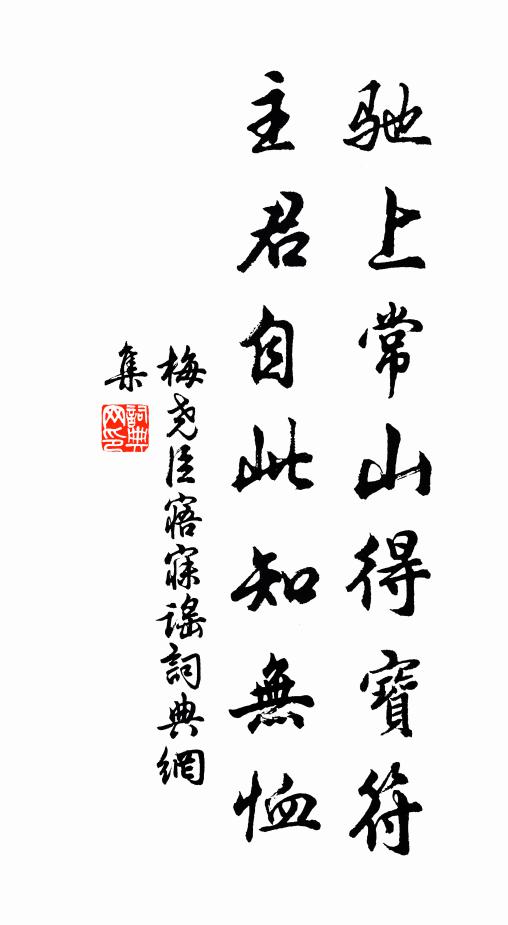 馳上常山得寶符
主君自此知無恤
梅尧臣寤寐謠詞典網
集
詞典网印